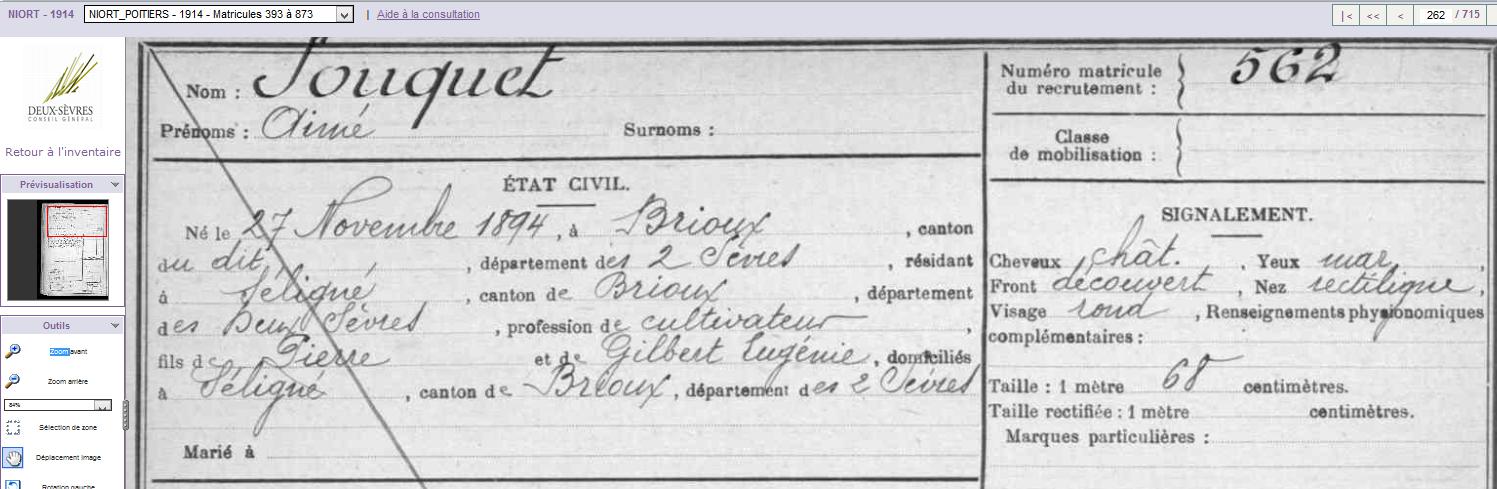 NIORT - 1914 NIORT_POITIERS - 1914 - Matricules 393 à 873 | Aide à la consultation |< << < 262 / 715
DEUX-SÈVRES
CONSEIL GÉNÉRAL
Retour à l'inventaire
Prévisualisation
Outils
Zoom avant
Zoom arrière
84%
Sélection de zone
Déplacement image
Rotation gauche
Nom : Fouquet
Prénoms : Aimé Surnoms :
ÉTAT CIVIL.
Né le 27 Novembre 1894, à Brioux, canton
du dit, département des 2 Sèvres, résidant
à Séligné, canton de Brioux, département
des Deux Sèvres, profession de cultivateur,
fils de Pierre et de Gilbert Eugénie, domiciliés
à Séligné, canton de Brioux, département des 2 Sèvres
Marié à
Numéro matricule
du recrutement : 562
Classe
de mobilisation :
SIGNALEMENT.
Cheveux chât., Yeux mar,
Front découvert, Nez rectiligne,
Visage rond, Renseignements physionomiques
complémentaires :
Taille : 1 mètre 68 centimètres.
Taille rectifiée : 1 mètre centimètres.
Marques particulières :